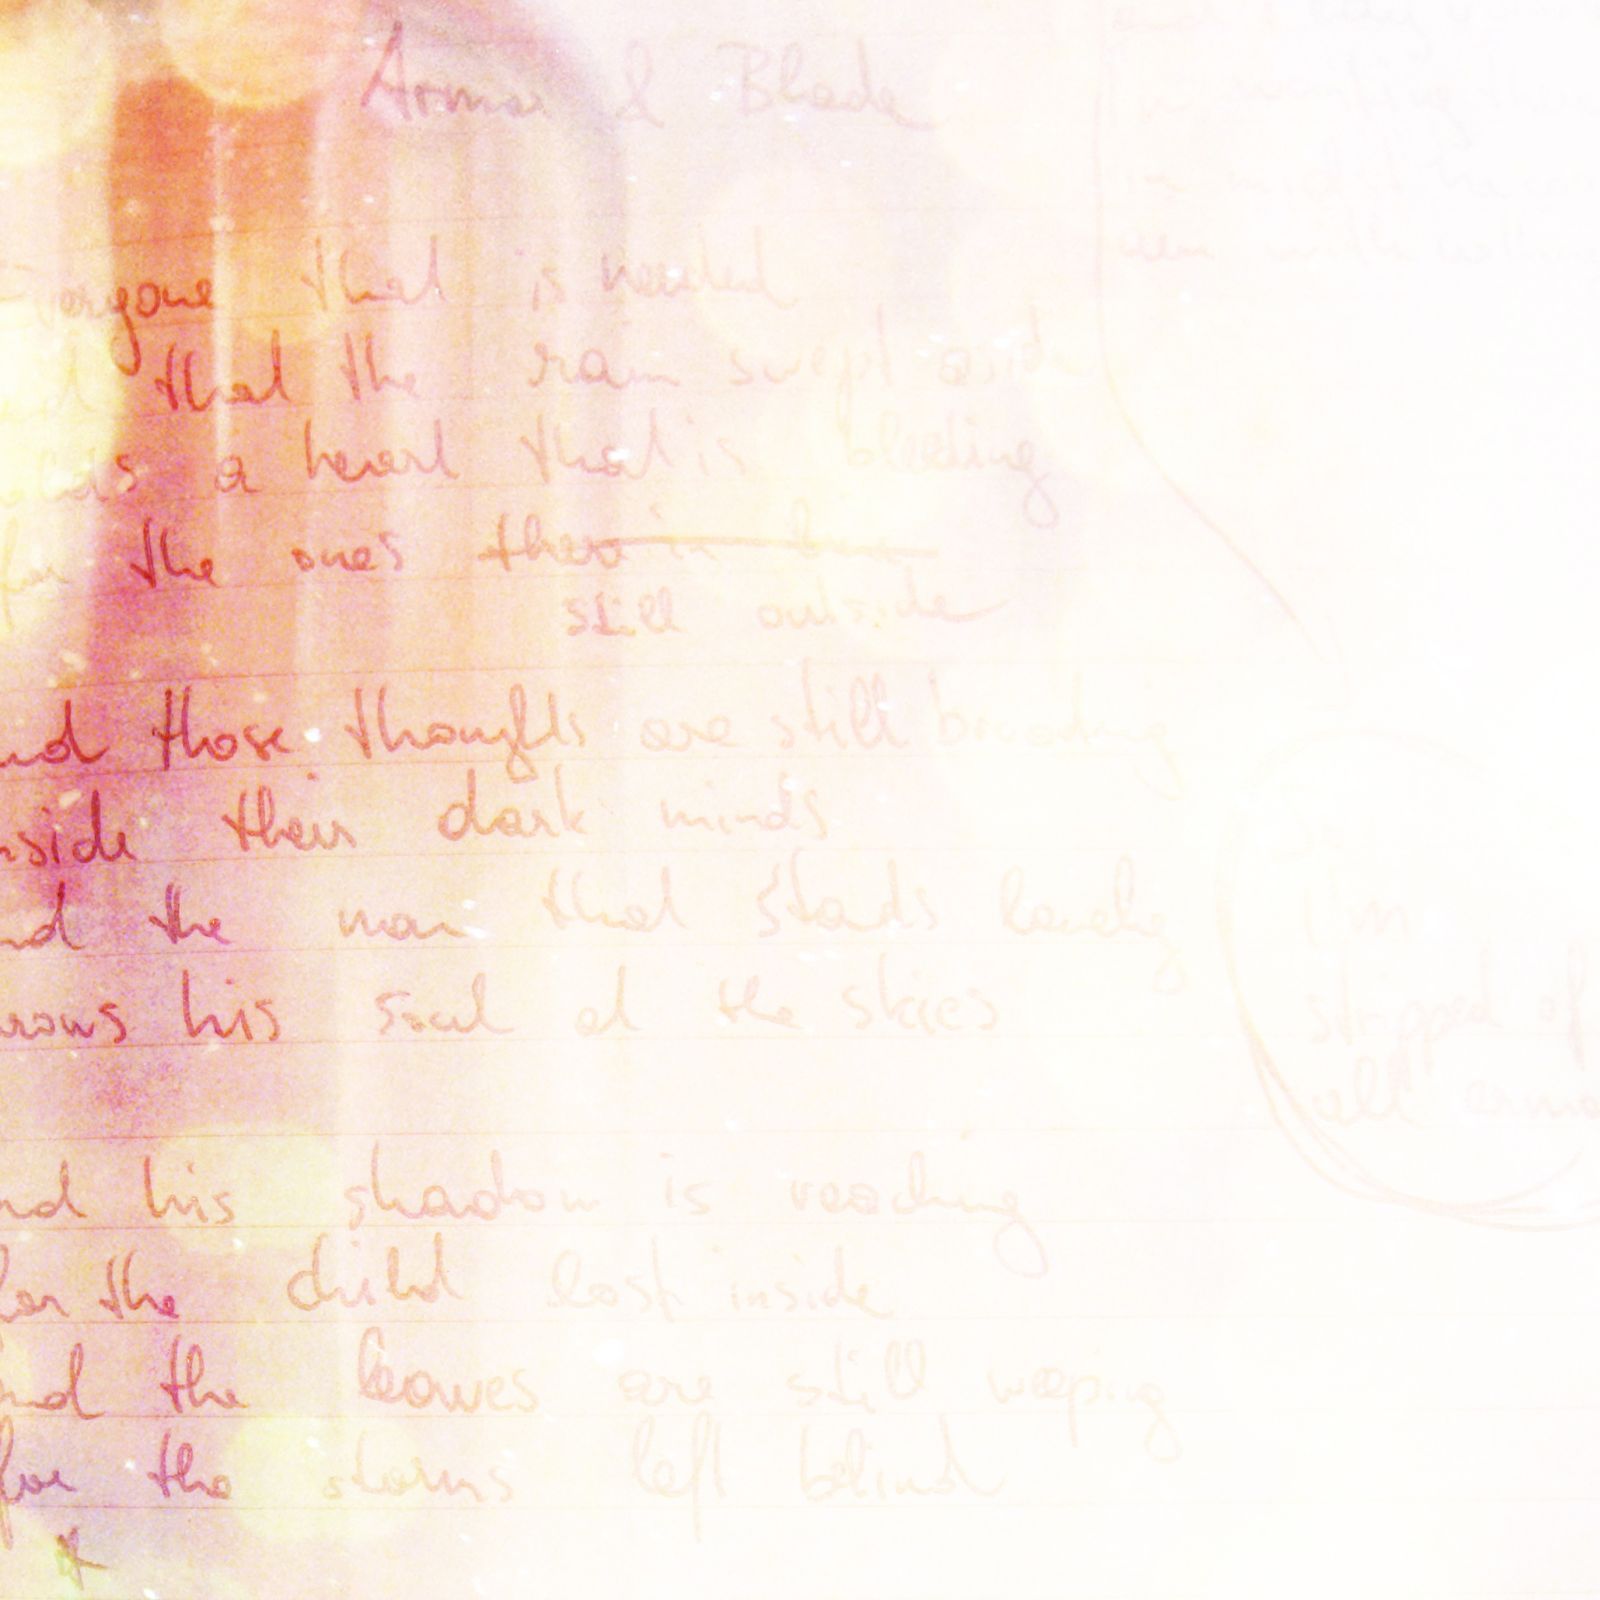 Armor & Blade
Everyone that is needed
that the rain swept aside
holds a heart that is bleeding
for the ones there in line
still outside
and those thoughts are still brooding
inside their dark minds
and the man that stands lonely
throws his soul at the skies
and his shadow is reaching
for the child lost inside
and the leaves are still weeping
for the storms left behind
I'm
stripped of
all